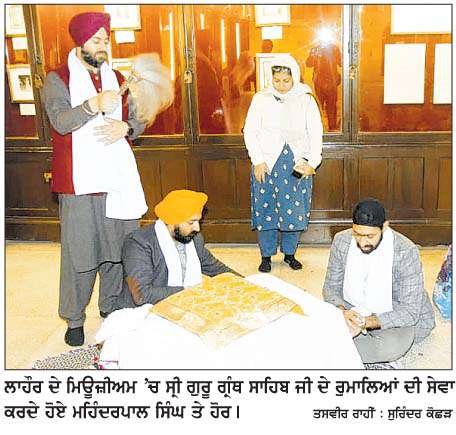 ਲਾਹੌਰ ਦੇ ਮਿਊਜ਼ੀਅਮ ’ਚ ਸ੍ਰੀ ਗੁਰੂ ਗ੍ਰੰਥ ਸਾਹਿਬ ਜੀ ਦੇ ਰੁਮਾਲਿਆਂ ਦੀ ਸੇਵਾ
ਕਰਦੇ ਹੋਏ ਮਹਿੰਦਰਪਾਲ ਸਿੰਘ ਤੇ ਹੋਰ। ਤਸਵੀਰ ਰਾਹੀਂ : ਸੁਰਿੰਦਰ ਕੋਛੜ